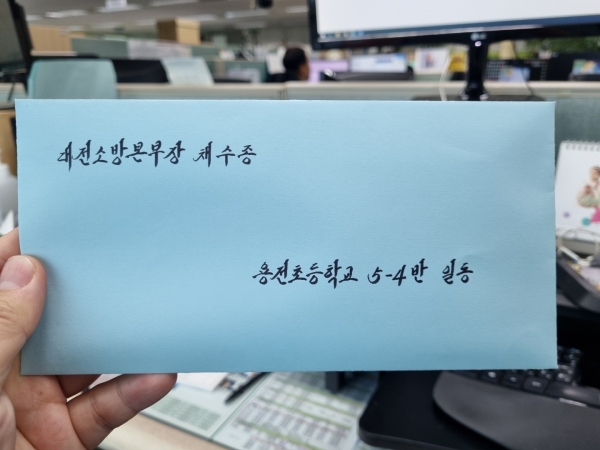 대전소방본부장 채수종
용전초등학교 5-4반 일동